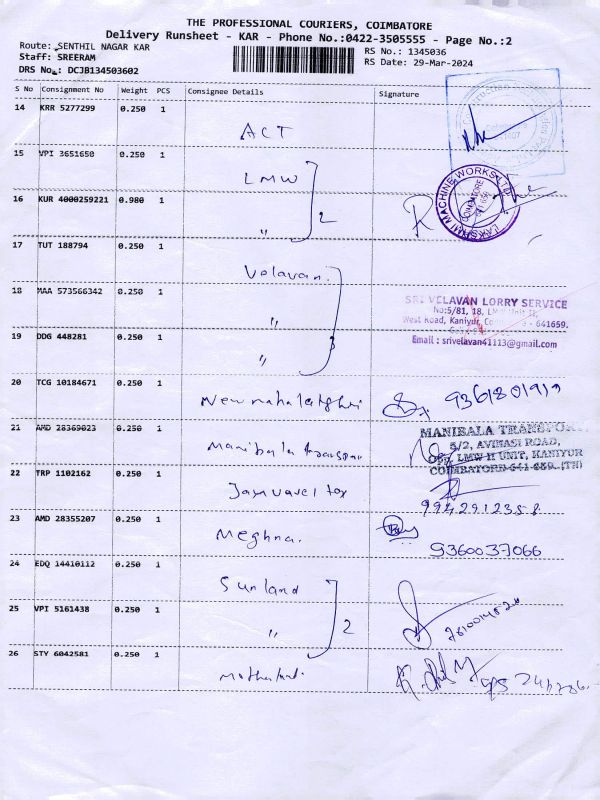 THE PROFESSIONAL COURIERS, COIMBATORE
Delivery Runsheet - KAR - Phone No.:0422-3505555 - Page No.:2
Route: SENTHIL NAGAR KAR
Staff: SREERAM
DRS No.: DCJB134503602
RS No.: 1345036
RS Date: 29-Mar-2024
S No Consignment No Weight PCS Consignee Details Signature
14 KRR 5277299 0.250 1
ACT
15 VPI 3651650 0.250 1
LMW
16 KUR 4000259221 0.980 1
" 2
LAKSHMI MACHINE WORKS LTD
COIMBATORE
641 659
17 TUT 188794 0.250 1
Velavan.
18 MAA 573566342 0.250 1
"
SRI VELAVAN LORRY SERVICE
No:5/81, 18,
West Road, Kaniyur, - 641659.
Email : srivelavan41113@gmail.com
19 DDG 448281 0.250 1
" 3
20 TCG 10184671 0.250 1
21 AMD 28369023 0.250 1
Manibala
MANIBALA
5/2, AVINASI ROAD,
OPP. LMW II UNIT, KANIYUR
COIMBATORE-641 659. (TN)
22 TRP 1102162 0.250 1
9942912358
23 AMD 28355207 0.250 1
Meghna.
9360037066
24 EDQ 14410112 0.250 1
Sunland
25 VPI 5161438 0.250 1
" 2
26 STY 6042581 0.250 1